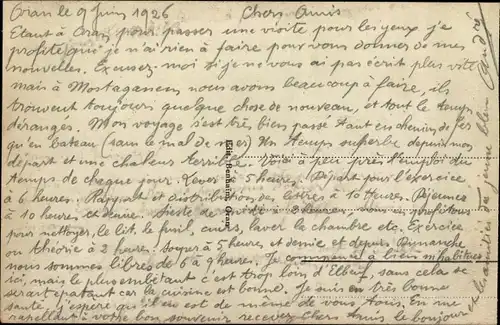 Oran le 9 Juin 1926 Chers Amis
Etant à Oran pour passer une visite pour les yeux je
profite que je n'ai rien à faire pour vous donner de mes
nouvelles. Excusez moi si je ne vous ai pas écrit plus vite
mais à Mostaganem nous avons beaucoup à faire, ils
trouvent toujours quelque chose de nouveau, et tout le temps
dérangés. Mon voyage s'est très bien passé tant en chemin de fer
qu'en bateau (sans le mal de mer) Un temps superbe depuis mon
départ et une chaleur terrible. Voici à peu près l'emploi du
temps de chaque jour. Lever 5 heures. Départ pour l'exercice
à 6 heures. Rapport et distribution des lettres à 10 heures. Déjeuner
à 10 heures et demie. Sieste de à 2 heures profitons
pour nettoyer, le lit, le fusil, cuirs, laver la chambre etc. Exercice
ou théorie à 2 heures. Souper à 5 heures et demie et depuis Dimanche
nous sommes libres de 6 à 9 heures. Je commence à bien m'habituer
ici, mais le plus embêtant c'est trop loin d'Elbeuf, sans cela se
serait épatant car la cuisine est bonne. Je suis en très bonne
santé j'espère qu'il en est de même de vous tous. En me
rappellant à votre bon souvenir recevez Chers Amis le bonjour
et les amitiés du jeune bleu André
Edit. Benhaïm, Oran